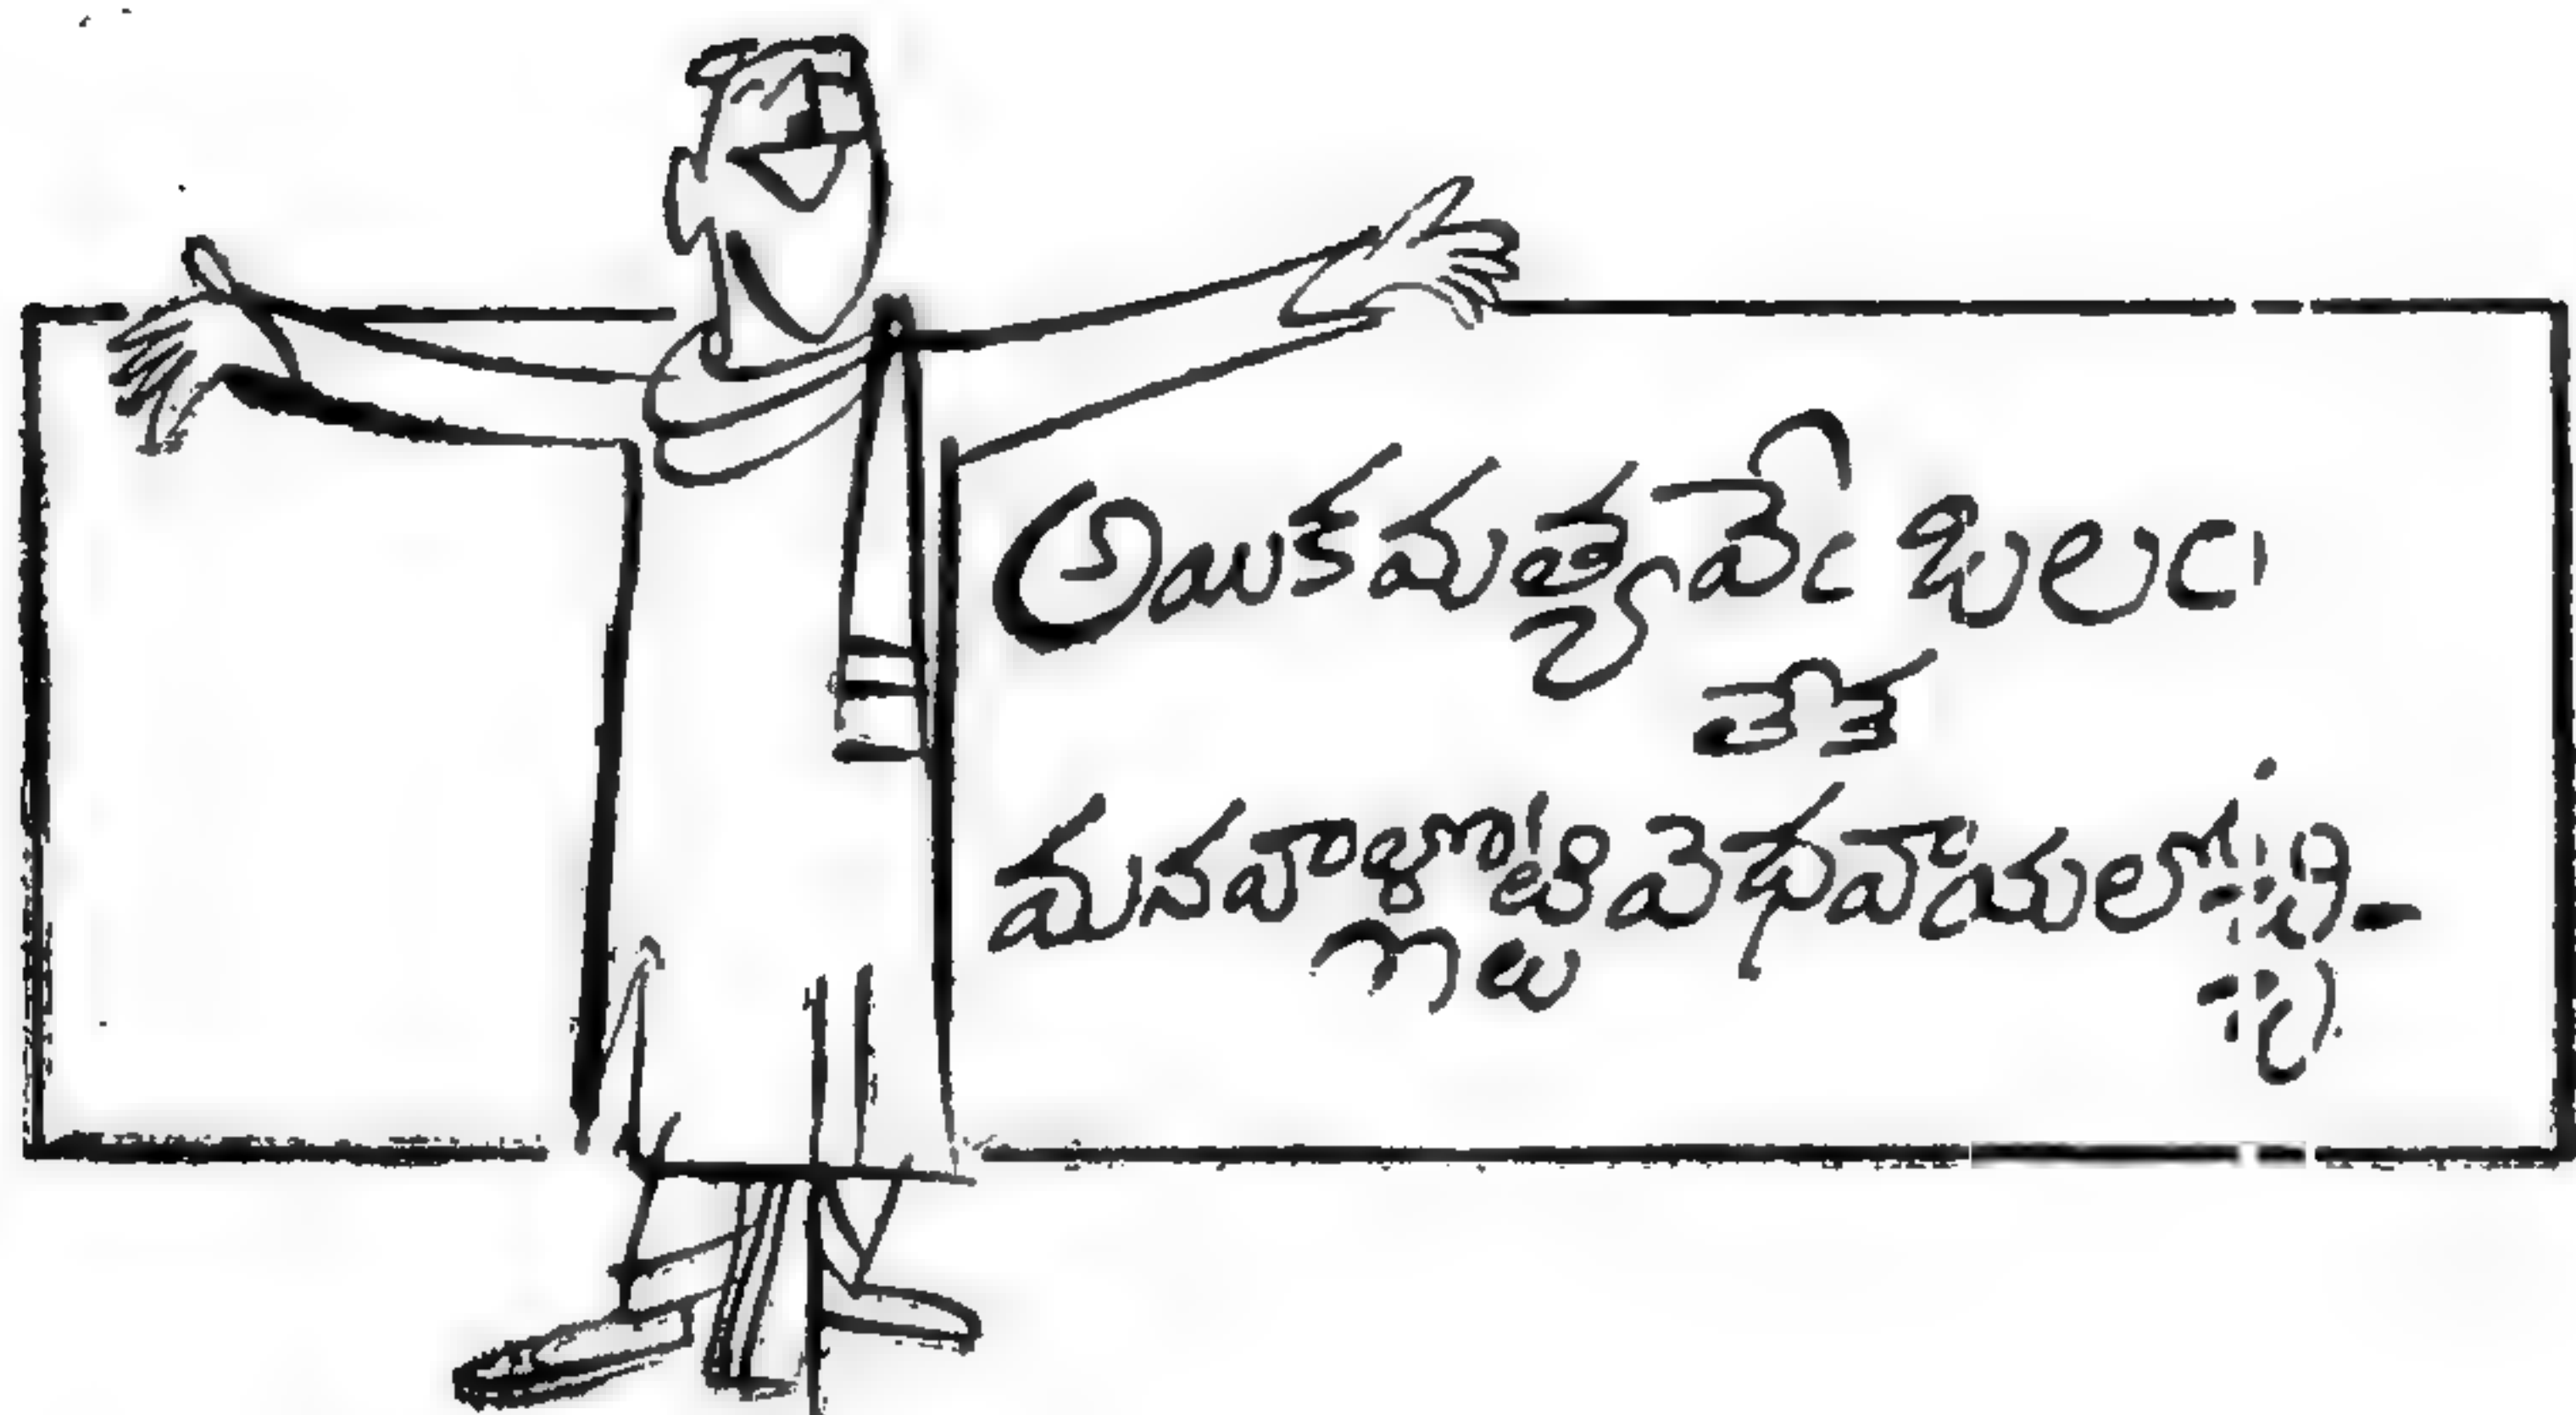 అయికమత్యమేఁ బలం
లేక
మనవాళ్ళొట్టి వెధవాయలోయ్